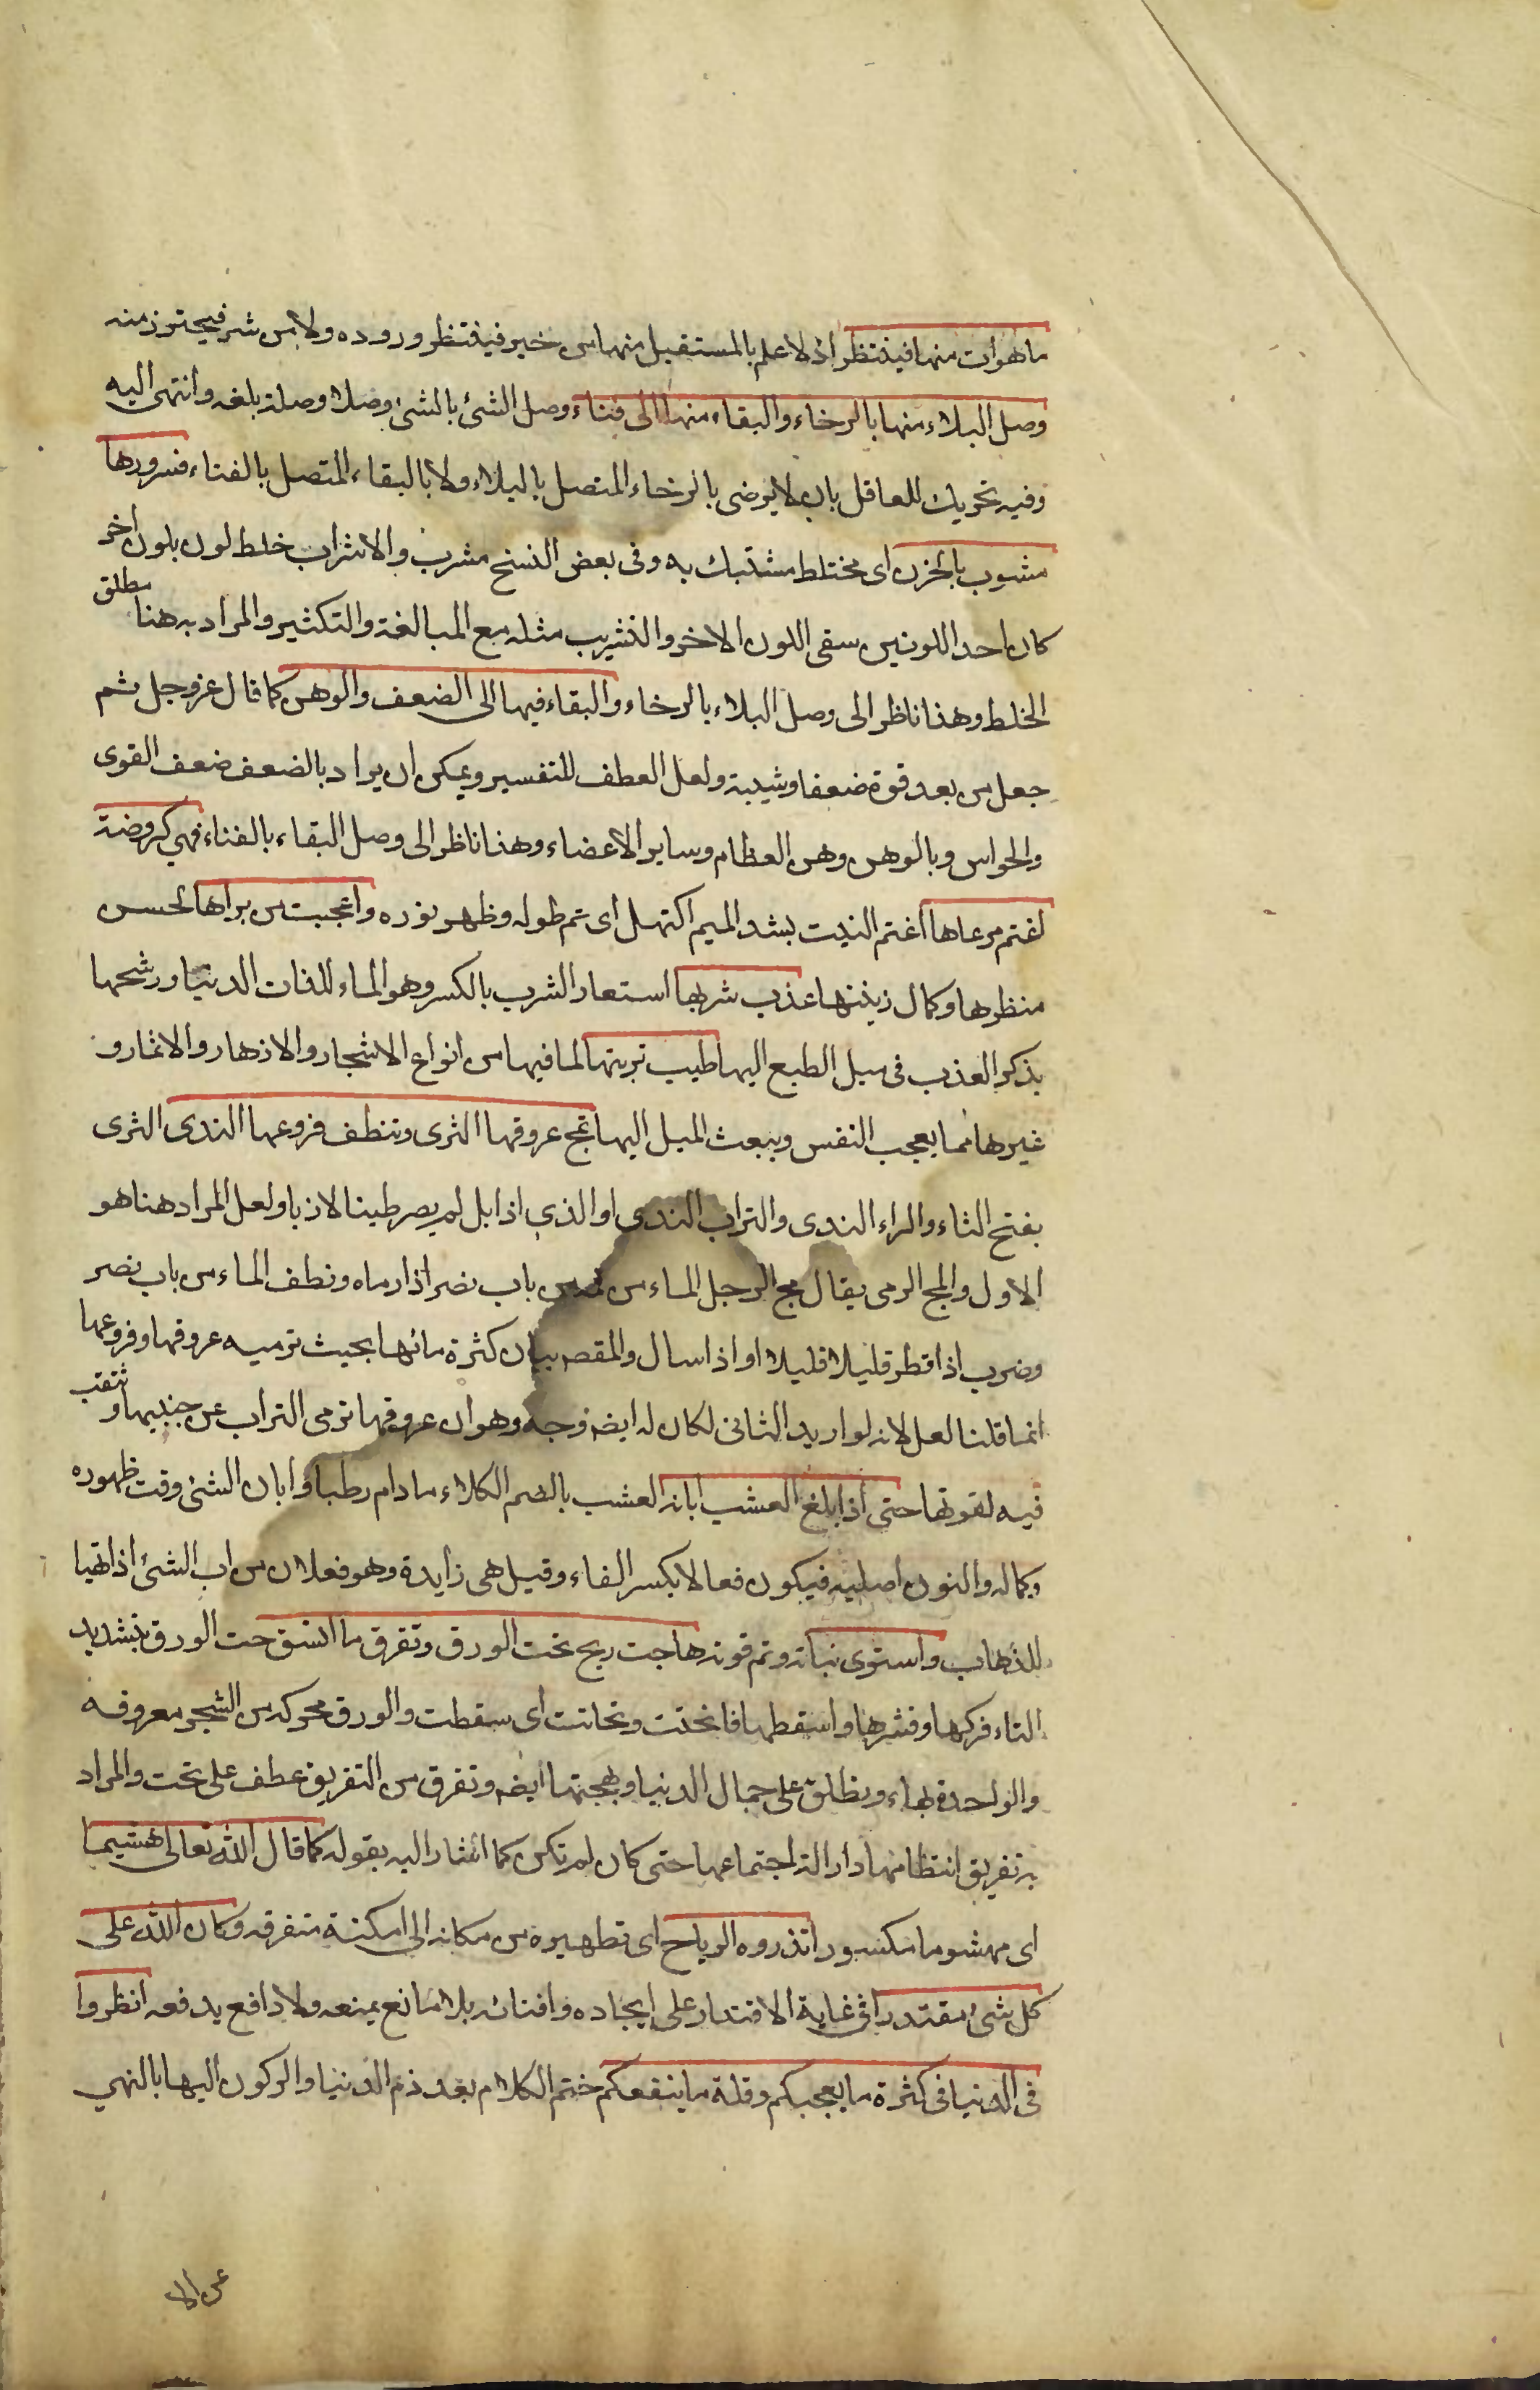 ما هو آت منها فينتظر اذ لا علم بالمستقبل منها من خير فينتظر وروده ولا من شر فيحترز منه
وصل البلاء منها بالرخاء والبقاء منها الى فناء وصل الشئ بالشئ وصلا وصلة بلغه وانتهى اليه
وفيه تحريك للعاقل بان لا يرضى بالرخاء المتصل بالبلاء ولا بالبقاء المتصل بالفناء فسرورها
مشوب بالحزن اى مختلط مشتبك به وفى بعض النسخ مشرب والاشراب خلط لون بلون اخر
كان احد اللونين سقى اللون الاخر والتشريب مثله مع المبالغة والتكثير والمراد به هنا مطلق
الخلط وهذا ناظر الى وصل البلاء بالرخاء والبقاء فيها الى الضعف والوهن كما قال عز وجل ثم
جعل من بعد قوة ضعفا وشيبة ولعل العطف للتفسير ويمكن ان يراد بالضعف ضعف القوى
والحواس وبالوهن وهن العظام وساير الاعضاء وهذا ناظر الى وصل البقاء بالفناء فهى كروضة
اغتم مرعاها اغتم النبت بشد الميم اكتهل اى تم طوله وظهر نوره واعجبت من يراها لحسن
منظرها وكمال زينتها عذب شربها استعار الشرب بالكسر وهو الماء للذات الدنيا ورشحها
بذكر العذب فى ميل الطبع اليها طيب تربتها لما فيها من انواع الاشجار والازهار والاثمار و
غيرها مما يعجب النفس ويبعث الميل اليها تمج عروقها الثرى وتنطف فروعها الندى الثرى
بفتح الثاء والراء الندى والتراب الندى او الذى اذا بل لم يصر طينا لازبا ولعل المراد هنا هو
الاول والمج الرمى يقال مج الرجل الماء من فمه من باب نصر اذا رماه ونطف الماء من باب نصر
وضرب اذا قطر قليلا قليلا او اذا سال والمقصـ بيان كثرة مائها بحيث ترميه عروقها وفروعها
انما قلنا لعل لانه لو اريد الثانى لكان له ايضـ وجه وهو ان عروقها ترمى التراب عن جنبيها وتثقب
فيه لقوتها حتى اذا بلغ العشب ابانه العشب بالضم الكلاء ما دام رطبا وابان الشئ وقت ظهوره
وكماله والنون اصليه فيكون فعالا بكسر الفاء وقيل هى زايدة وهو فعلان من اب الشئ اذا تهيا
للذهاب واستوى نباته وتم قوته هاجت ريح تحت الورق وتفرق ما اتسق حت الورق بتشديد
التاء فركها وقشرها واسقطها فانحتت وتحاتت اى سقطت والورق محركه من الشجر معروفه
والواحدة بهاء ويطلق على جمال الدنيا وبهجتها ايضـ وتفرق من التفريق عطف على تحت والمراد
به تفريق انتظامها دازالة اجتماعها حتى كان لم تكن كما اشار اليه بقوله كما قال الله تعالى هشيما
اى مهشوما مكسورا تذروه الرياح اى تطيره من مكانه الى امكنة متفرقه وكان الله على
كل شئ مقتدرا فى غاية الاقتدار على ايجاده وافنائه بلا مانع يمنعه ولا دافع يدفعه انظروا
فى الدنيا فى كثرة ما يعجبكم وقلة ما ينفعكم ختم الكلام بعد ذم الدنيا والركون اليها بالنهى
عن الا